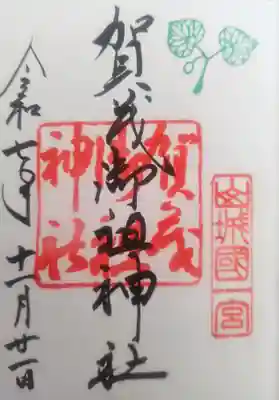 山城國一宮
賀茂御祖神社
賀茂
御祖
神社
令和七年十一月廿一日